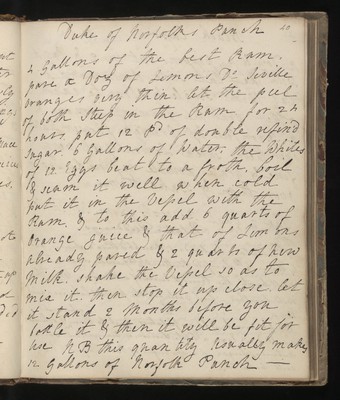 Duke of Norfolks Punch 20
4 Gallons of the best Rum.
pare a Doz of Lemons, Do Seville
Oranges very thin let the peel
of both Steep in the Rum for 24
hours, put 12 Pd of double refind
Sugar, 6 Gallons of Water, the Whites
of 12 Eggs beat to a froth, boil
& scum it well when cold
put it in the Vessel with the
Rum, & to this add 6 quarts of
Orange Juice & that of Lemons
already pared & 2 quarts of New
Milk. shake the Vessel so as to
mix it, then stop it up close let
it stand 2 Months before you
bottle it & then it will be fit for
use NB this quantity usually makes
12 Gallons of Norfolk Punch